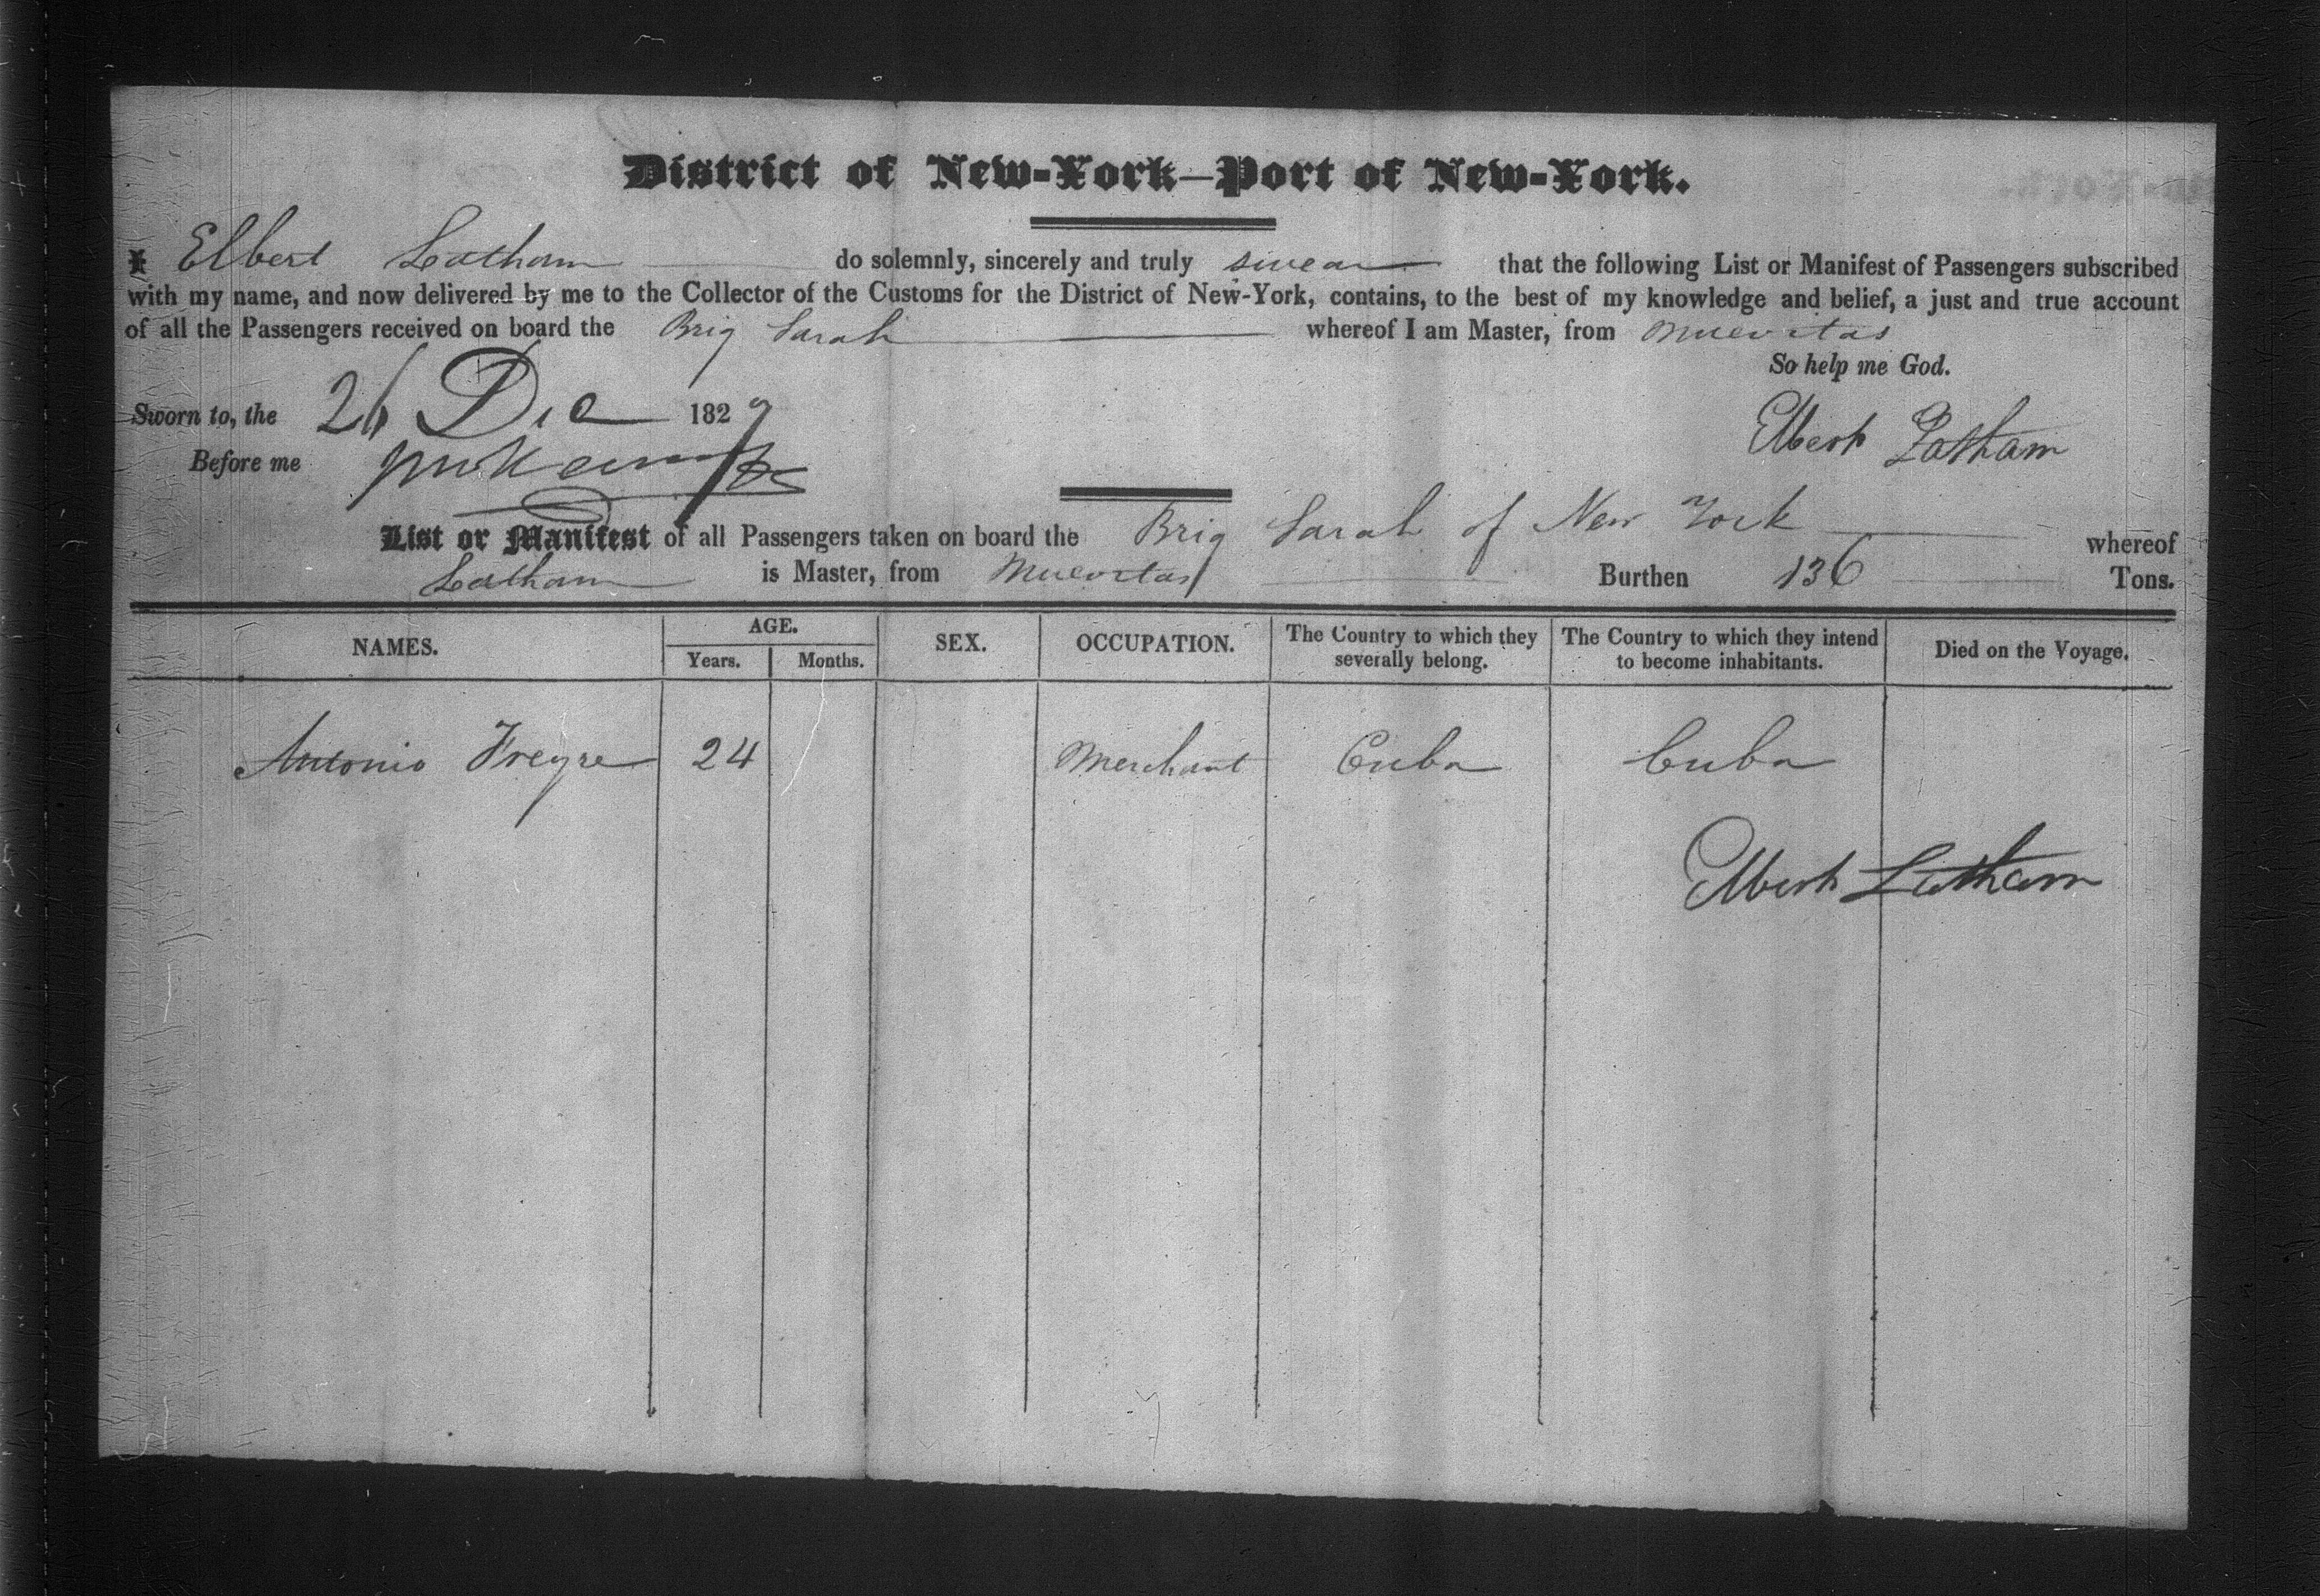 District of New-York—Port of New-York.
I Elbert Latham do solemnly, sincerely and truly swear that the following List or Manifest of Passengers subscribed
with my name, and now delivered by me to the Collector of the Customs for the District of New-York, contains, to the best of my knowledge and belief, a just and true account
of all the Passengers received on board the Brig Sarah whereof I am Master, from Muevitas
So help me God.
Sworn to, the 26 Dec 1829
Elbert Latham
Before me
List or Manifest of all Passengers taken on board the Brig Sarah of New York whereof
Latham is Master, from Muevitas Burthen 136 Tons.
NAMES. AGE. SEX. OCCUPATION. The Country to which they severally belong. The Country to which they intend to become inhabitants. Died on the Voyage.
Years. Months.
Antonio Freyre 24 Merchant Cuba Cuba
Elbert Latham